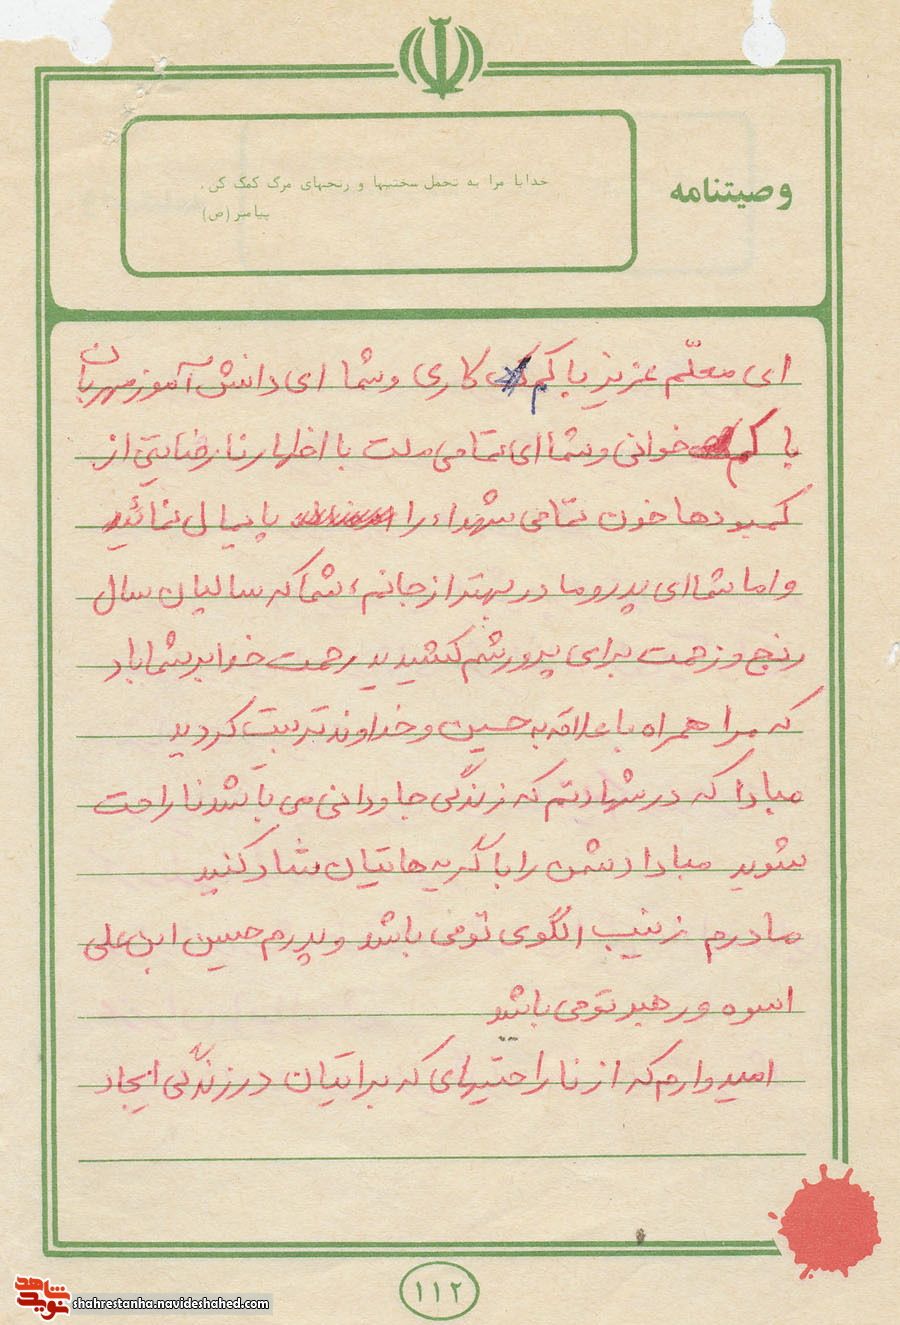 وصیتنامه
خدایا مرا به تحمل سختیها و رنجهای مرگ کمک کن.
پیامبر (ص)
ای معلّم عزیز با کم کاری و شما ای دانش آموز مهربان
با کم خوانی و شما ای تمامی ملت با اظهار نارضایتی از
کمبودها خون تمامی شهداء را پایمال نمائید
و اما شما ای پدر و مادر بهتر از جانم، شما که سالیان سال
رنج و زحمت برای پرورشم کشیدید رحمت خدا بر شما باد
که مرا همراه با علاقه به حسین و خداوند تربیت کردید
مبادا که در شهادتم که زندگی جاودانی می باشد ناراحت
شوید مبادا دشمن را با گریه هایتان شاد کنید
مادرم زینب الگوی تو می باشد و پدرم حسین ابن علی
اسوه و رهبر تو می باشد
امیدوارم که از ناراحتیهای که برایتان در زندگی ایجاد
۱۱۲
نوید شاهد
shahrestanha.navideshahed.com